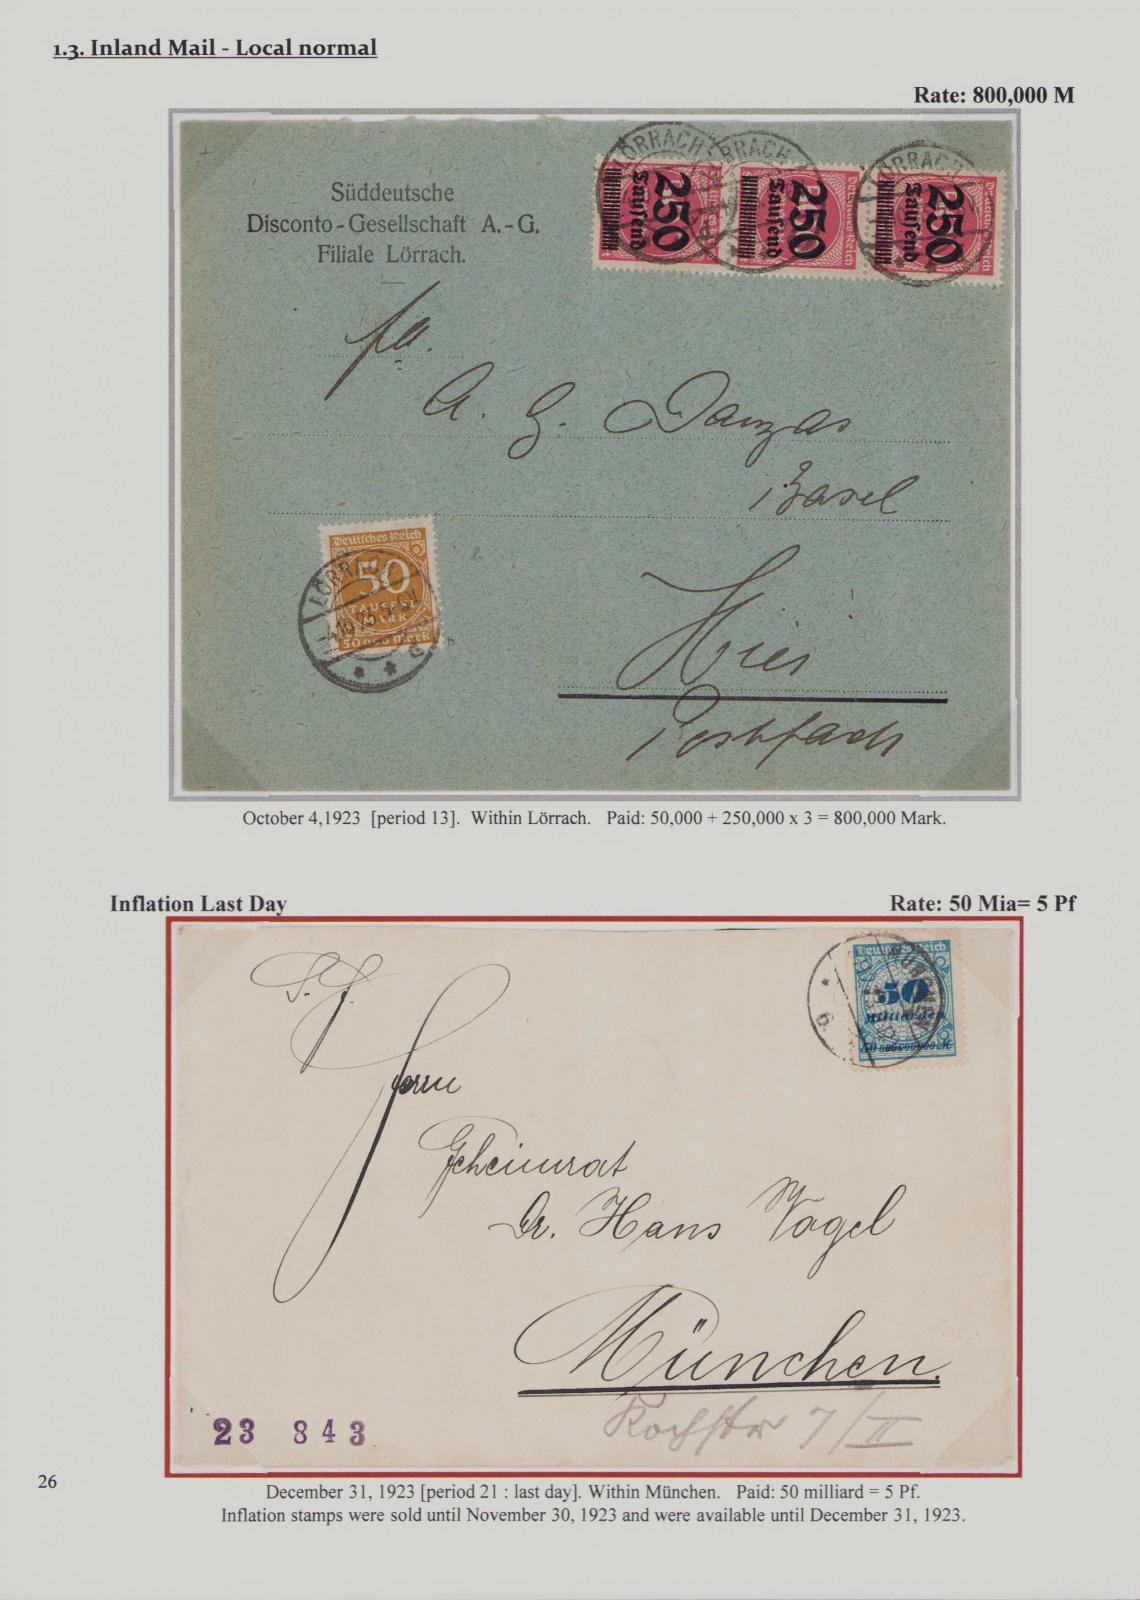 1.3. Inland Mail - Local normal
Rate: 800,000 M
Süddeutsche
Disconto-Gesellschaft A.-G.
Filiale Lörrach.
LÖRRACH
LÖRRACH
250
Tausend
250
Tausend
250
Tausend
Deutsches Reich
Deutsches Reich
fa.
A. G. Danzas
Basel
Deutsches Reich
50
TAUSEND
MARK
50000 Mark
LÖRRACH
Hier
Postfach
October 4,1923 [period 13]. Within Lörrach. Paid: 50,000 + 250,000 x 3 = 800,000 Mark.
Inflation Last Day
Rate: 50 Mia= 5 Pf
Deutsches Reich
50
Milliarden
50 000000000 M
MÜNCHEN
6
Herrn
Geheimrat
Dr. Hans Vogel
München.
Kochstr 7/II
23 843
26
December 31, 1923 [period 21 : last day]. Within München. Paid: 50 milliard = 5 Pf.
Inflation stamps were sold until November 30, 1923 and were available until December 31, 1923.